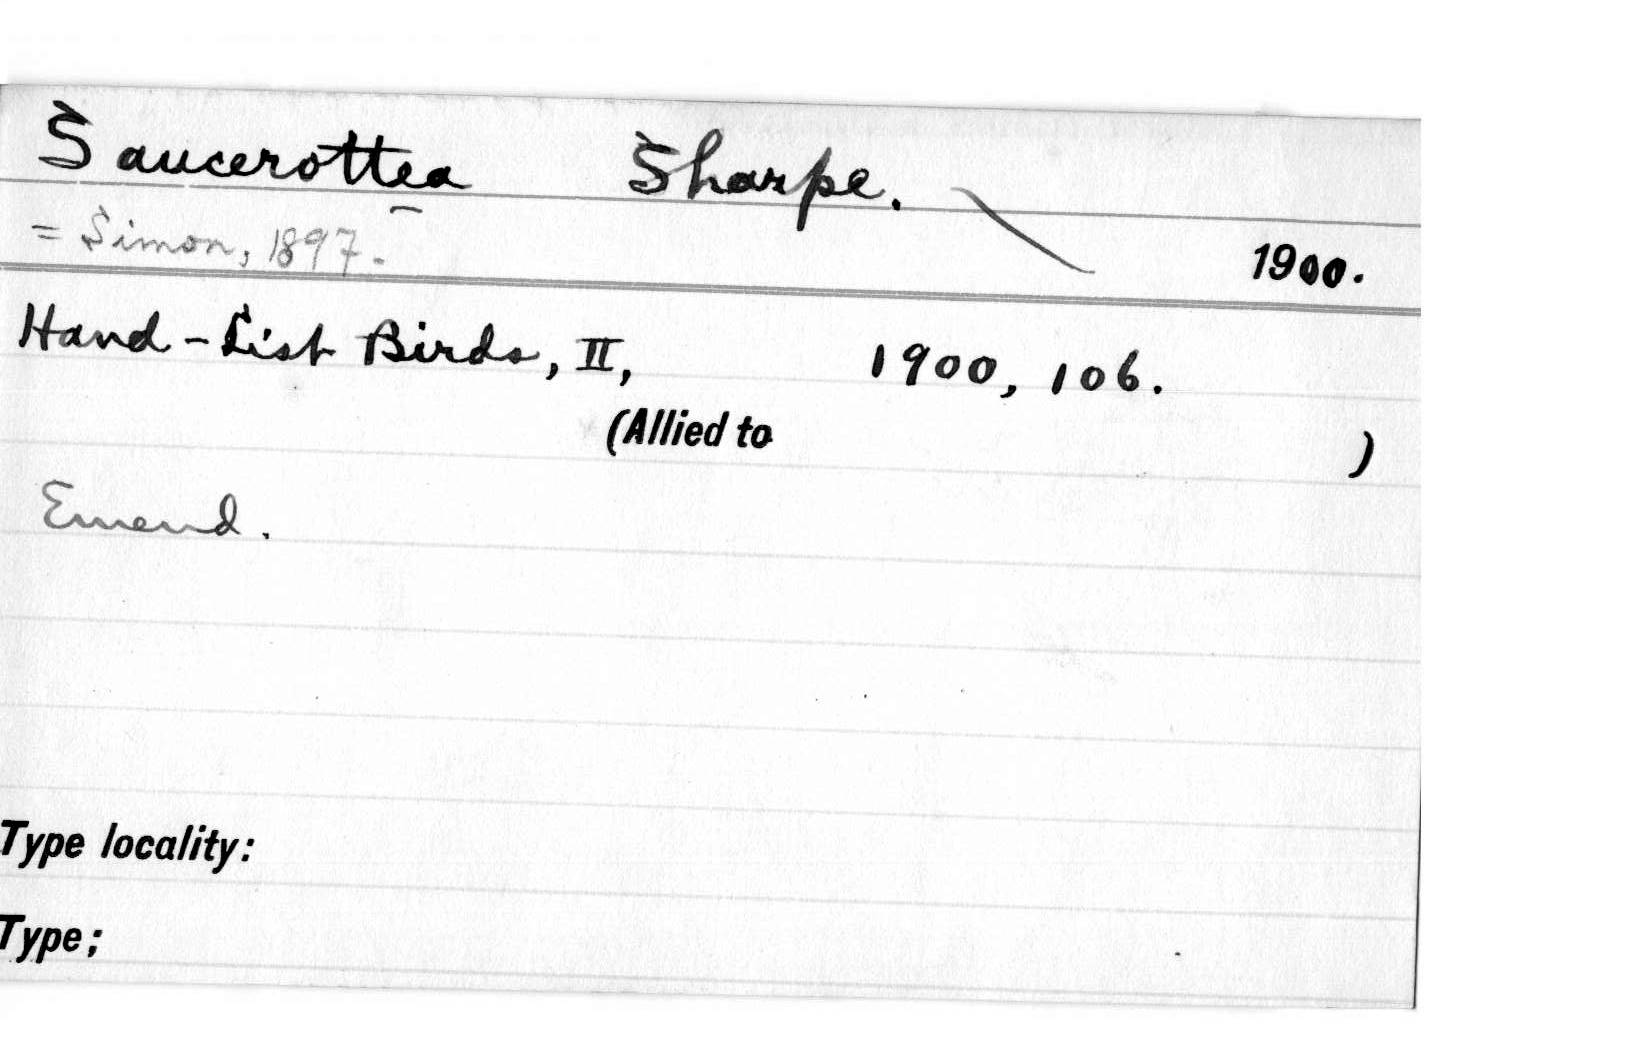 Saucerottea Sharpe.
= Simon, 1897.
1900.
Hand-List Birds, II, 1900, 106.
(Allied to )
Emend.
Type locality:
Type;